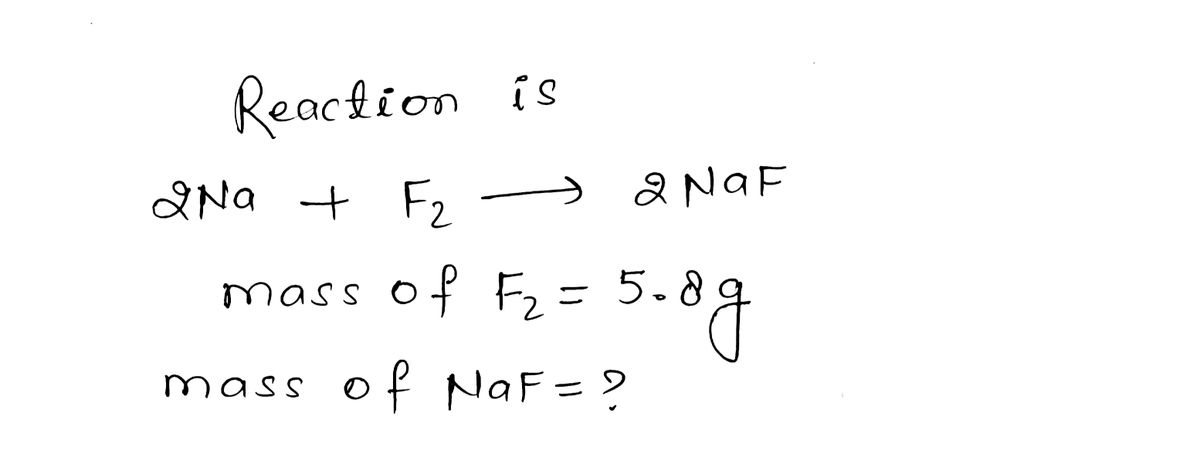 Reaction is
2Na + F₂ → 2NaF
mass of F₂ = 5.8g
mass of NaF = ?